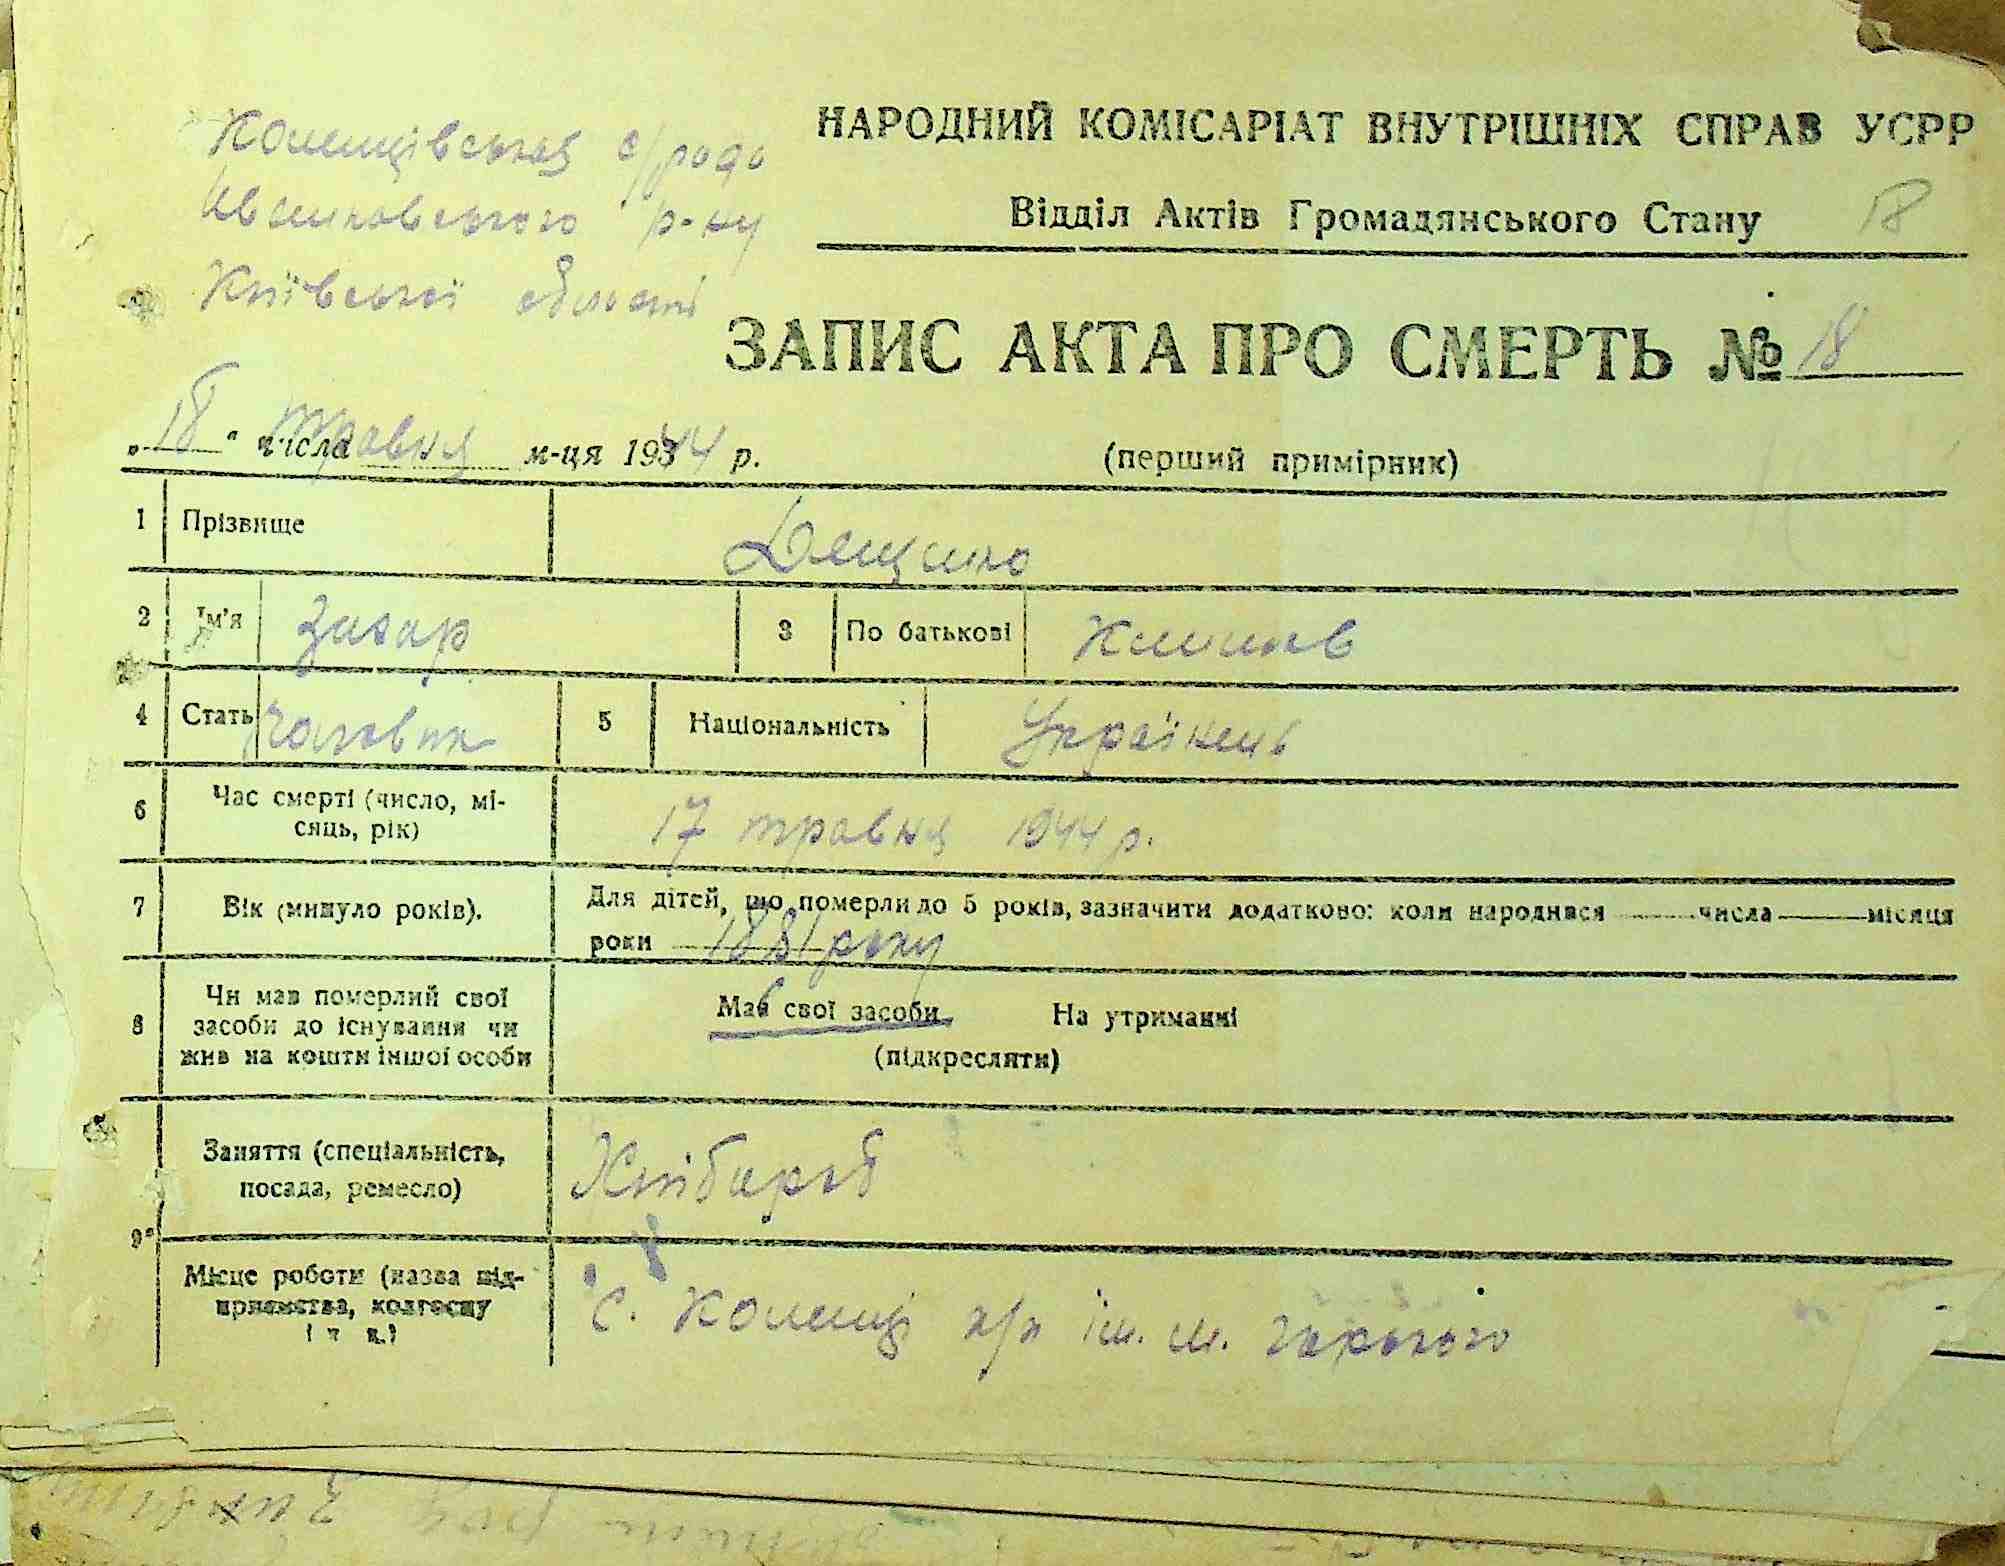 Коленцівська с/рада
НАРОДНИЙ КОМІСАРІАТ ВНУТРІШНІХ СПРАВ УСРР
Іванковського р-ну
Відділ Актів Громадянського Стану 18
Київської області
ЗАПИС АКТА ПРО СМЕРТЬ № 18
„18" числа травня м-ця 1944 р.
(перший примірник)
1 Прізвище
2 Ім'я Захар 3 По батькові Климов
4 Стать Чоловик 5 Національність Українець
6 Час смерті (число, мі-
сяць, рік) 17 травня 1944 р.
7 Вік (минуло років). Для дітей, що померли до 5 років, зазначити додатково: коли народився числа місяця
роки 1881 року
8 Чи мав померлий свої
засоби до існування чи
жив на кошти іншої особи
Мав свої засоби На утриманні
(підкреслити)
Заняття (спеціальність,
посада, ремесло) Хлібороб
9
Місце роботи (назва під-
приємства, колгоспу
і т. д.) С. Коленці к/г ім. М. Горького